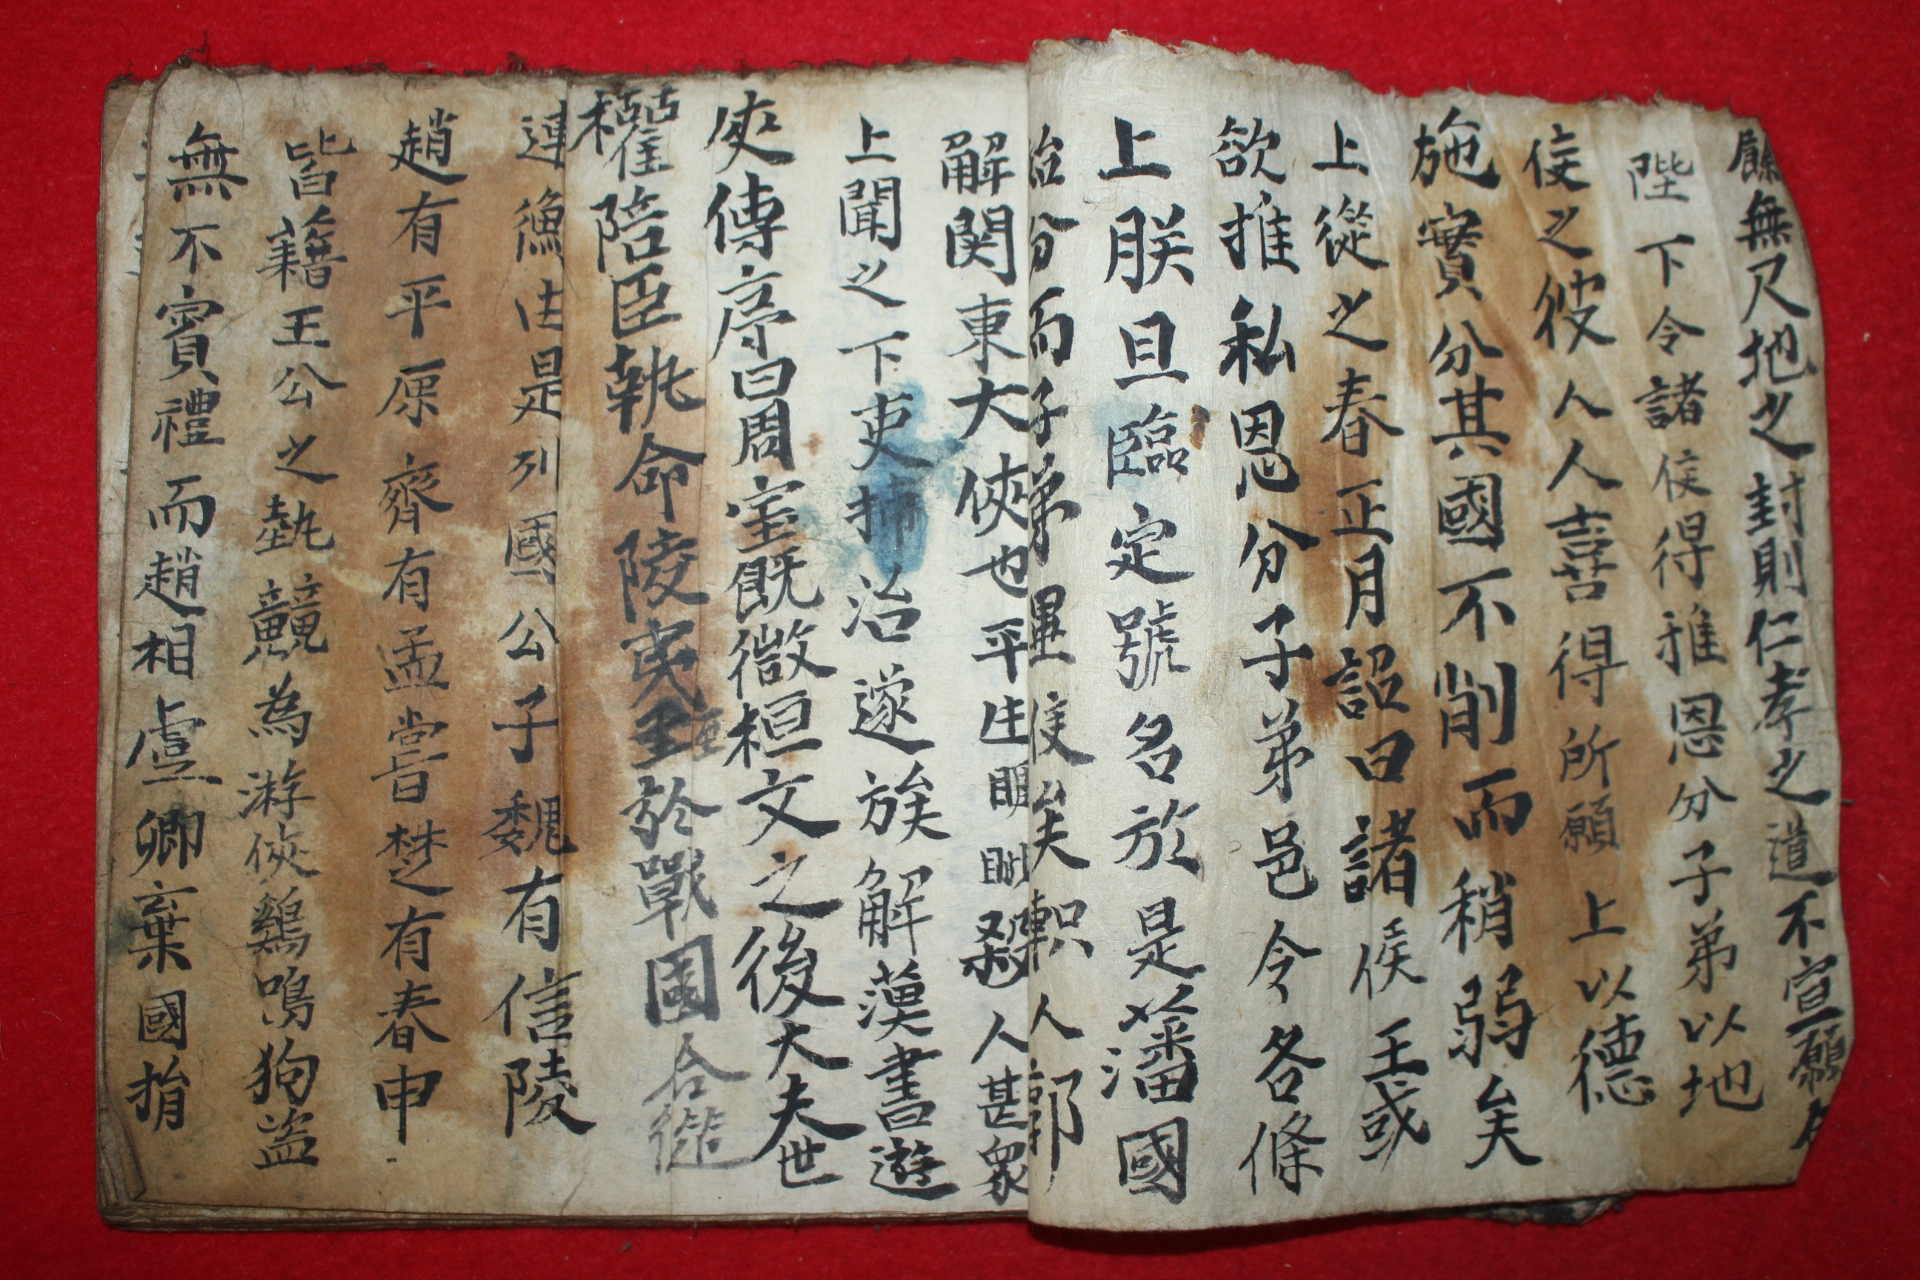 餘無尺地之封則仁孝之道不宣願
陛下令諸侯得推恩分子弟以地
侯之彼人人喜得所願上以德
施實分其國不削而稍弱矣
上從之春正月詔曰諸侯王或
欲推私恩分子弟邑令各條
上朕且臨定號名於是藩國
始分而子弟畢侯矣軹人郭
解関東大俠也平生睚眦殺人甚衆
上聞之下吏捕治遂族解漢書遊
俠傳序曰周室旣微桓文之後大夫世
權陪臣執命陵夷至於戰國合從
連衡由是列國公子魏有信陵
趙有平原齊有孟嘗楚有春申
皆藉王公之埶競為游俠鷄鳴狗盜
無不賓禮而趙相虞卿棄國捐